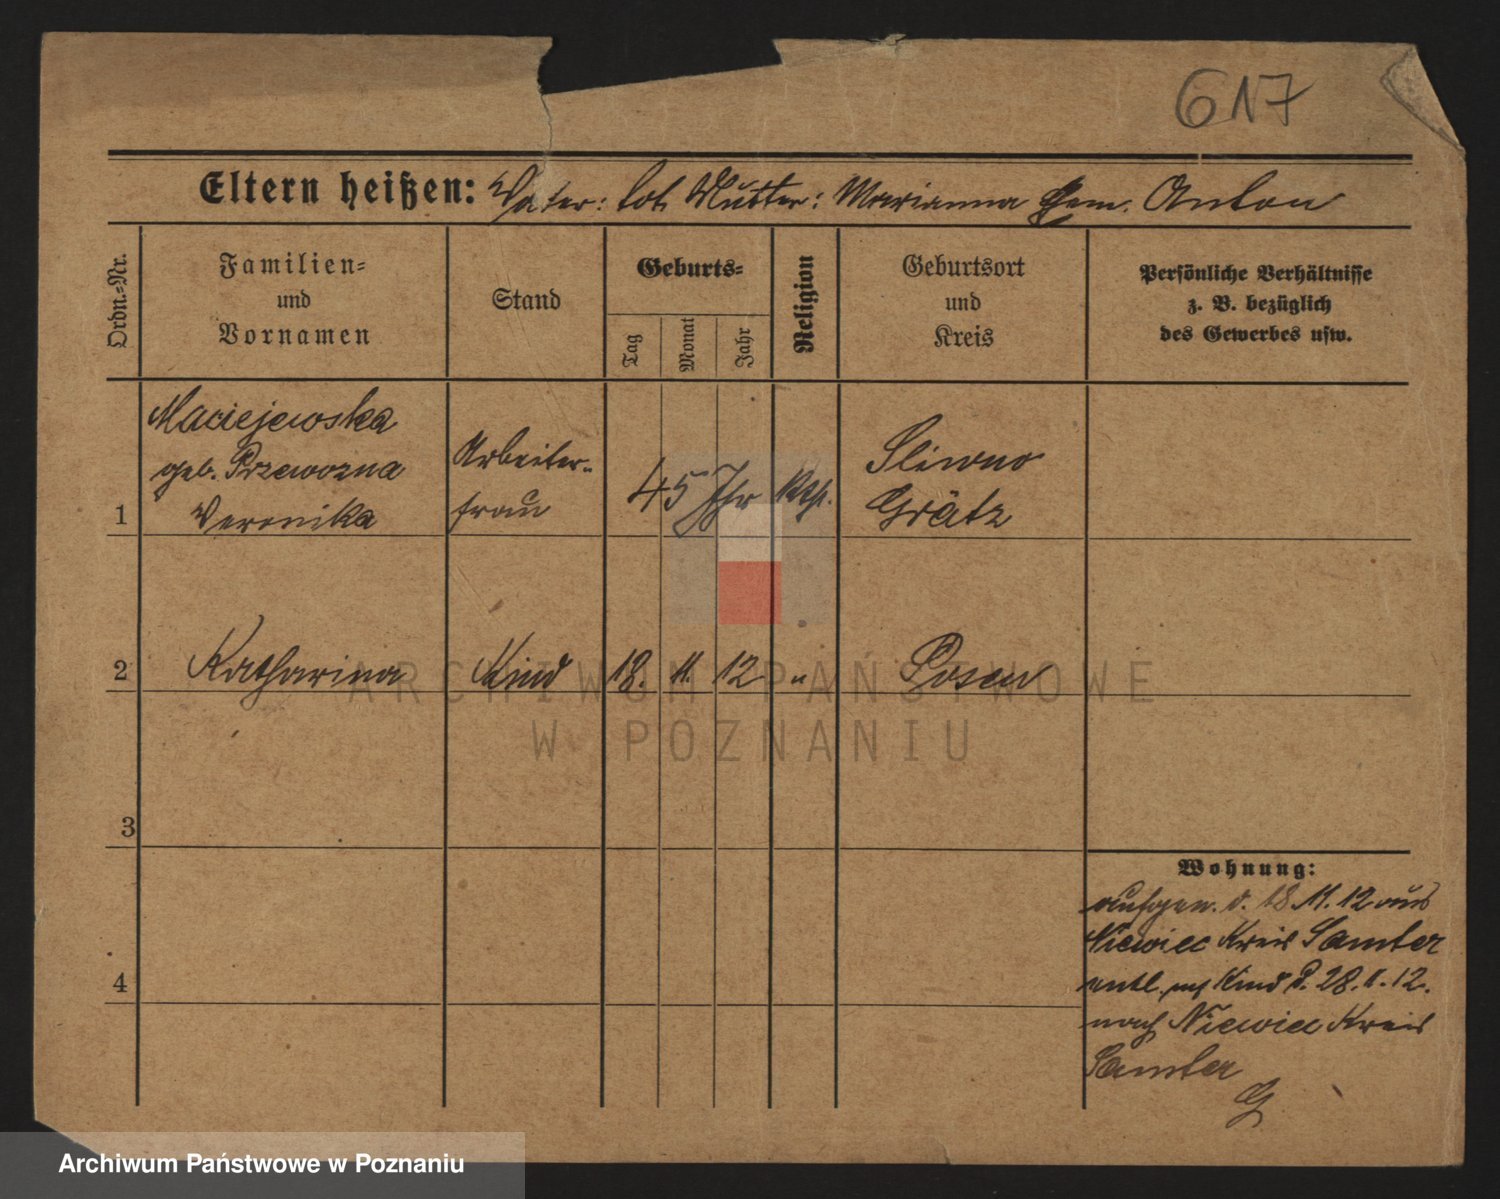 617
Eltern heißen: Vater: tot Mutter: Marianna Gem. Anton
Ordn.-Nr.
Familien-
und
Vornamen
Stand
Geburts-
Tag
Monat
Jahr
Religion
Geburtsort
und
Kreis
Persönliche Verhältnisse
z. B. bezüglich
des Gewerbes usw.
1
Maciejewska
geb. Przewozna
Veronika
Arbeiter-
frau
45 Jhr
Kth.
Sliwno
Grätz
2
Katharina
Kind
18. 11. 12
"
Posen
3
4
Wohnung:
aufgen. d. 18.11.12 aus
Kreis Samter
entl. mit Kind d. 28.11.12.
nach Kreis
Samter
G
ARCHIWUM PAŃSTWOWE
W POZNANIU
Archiwum Państwowe w Poznaniu